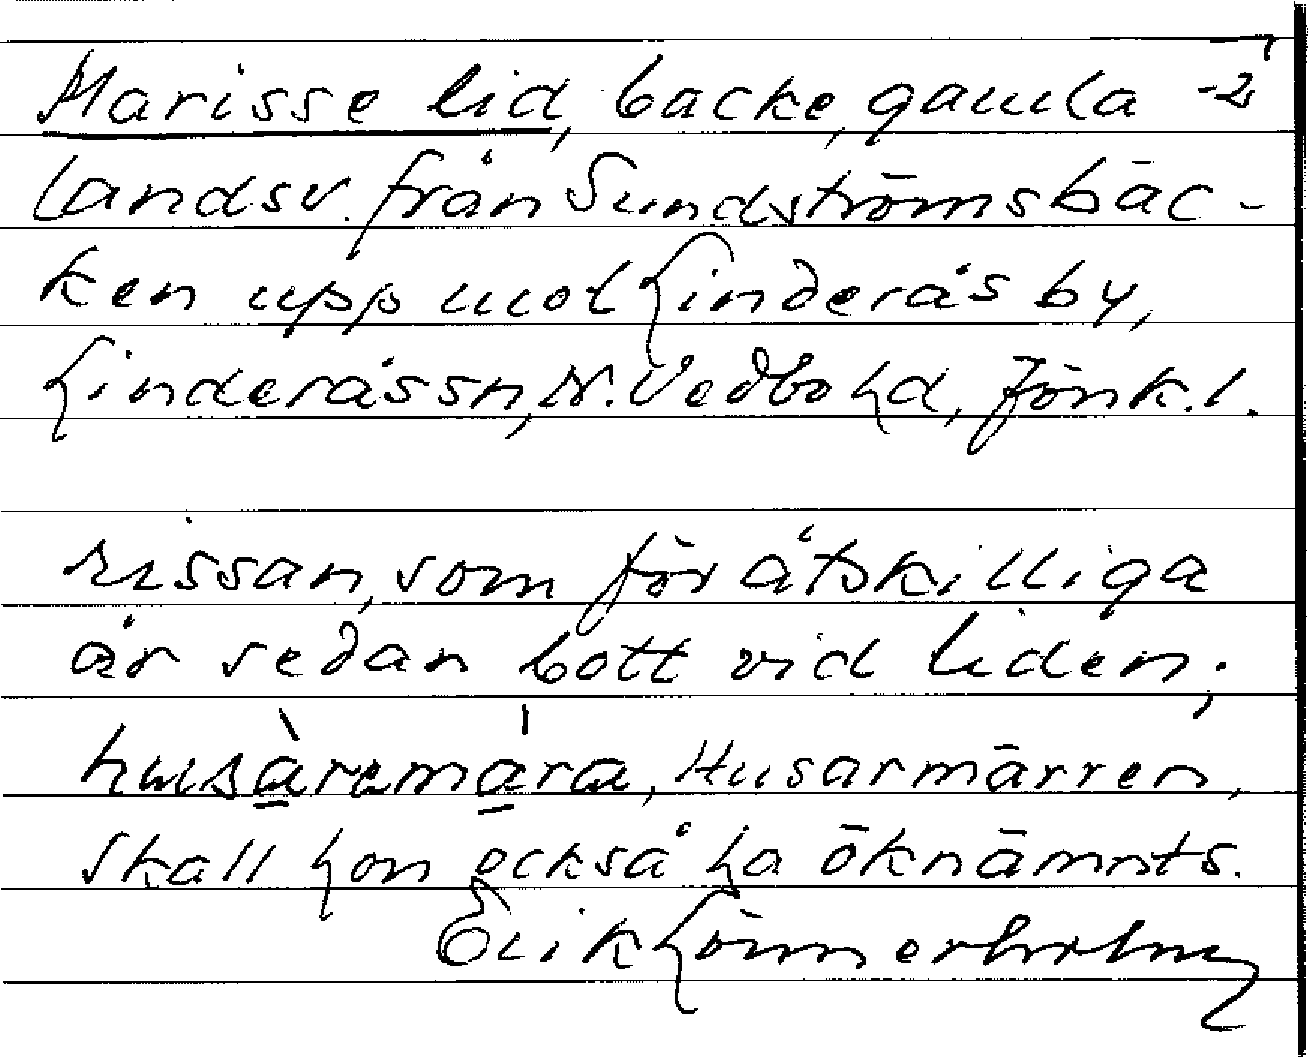 Marisse lid, backe, gamla -2
landsv. från Sundströmsbäc-
ken upp mot Linderås by,
Linderåssn, N. Vedbo hd, Jönk. l.
rissan, som för åtskilliga
år sedan bott vid liden;
husàramára, Husarmärren,
skall hon också ha öknämnts.
Erik Lönnerholm